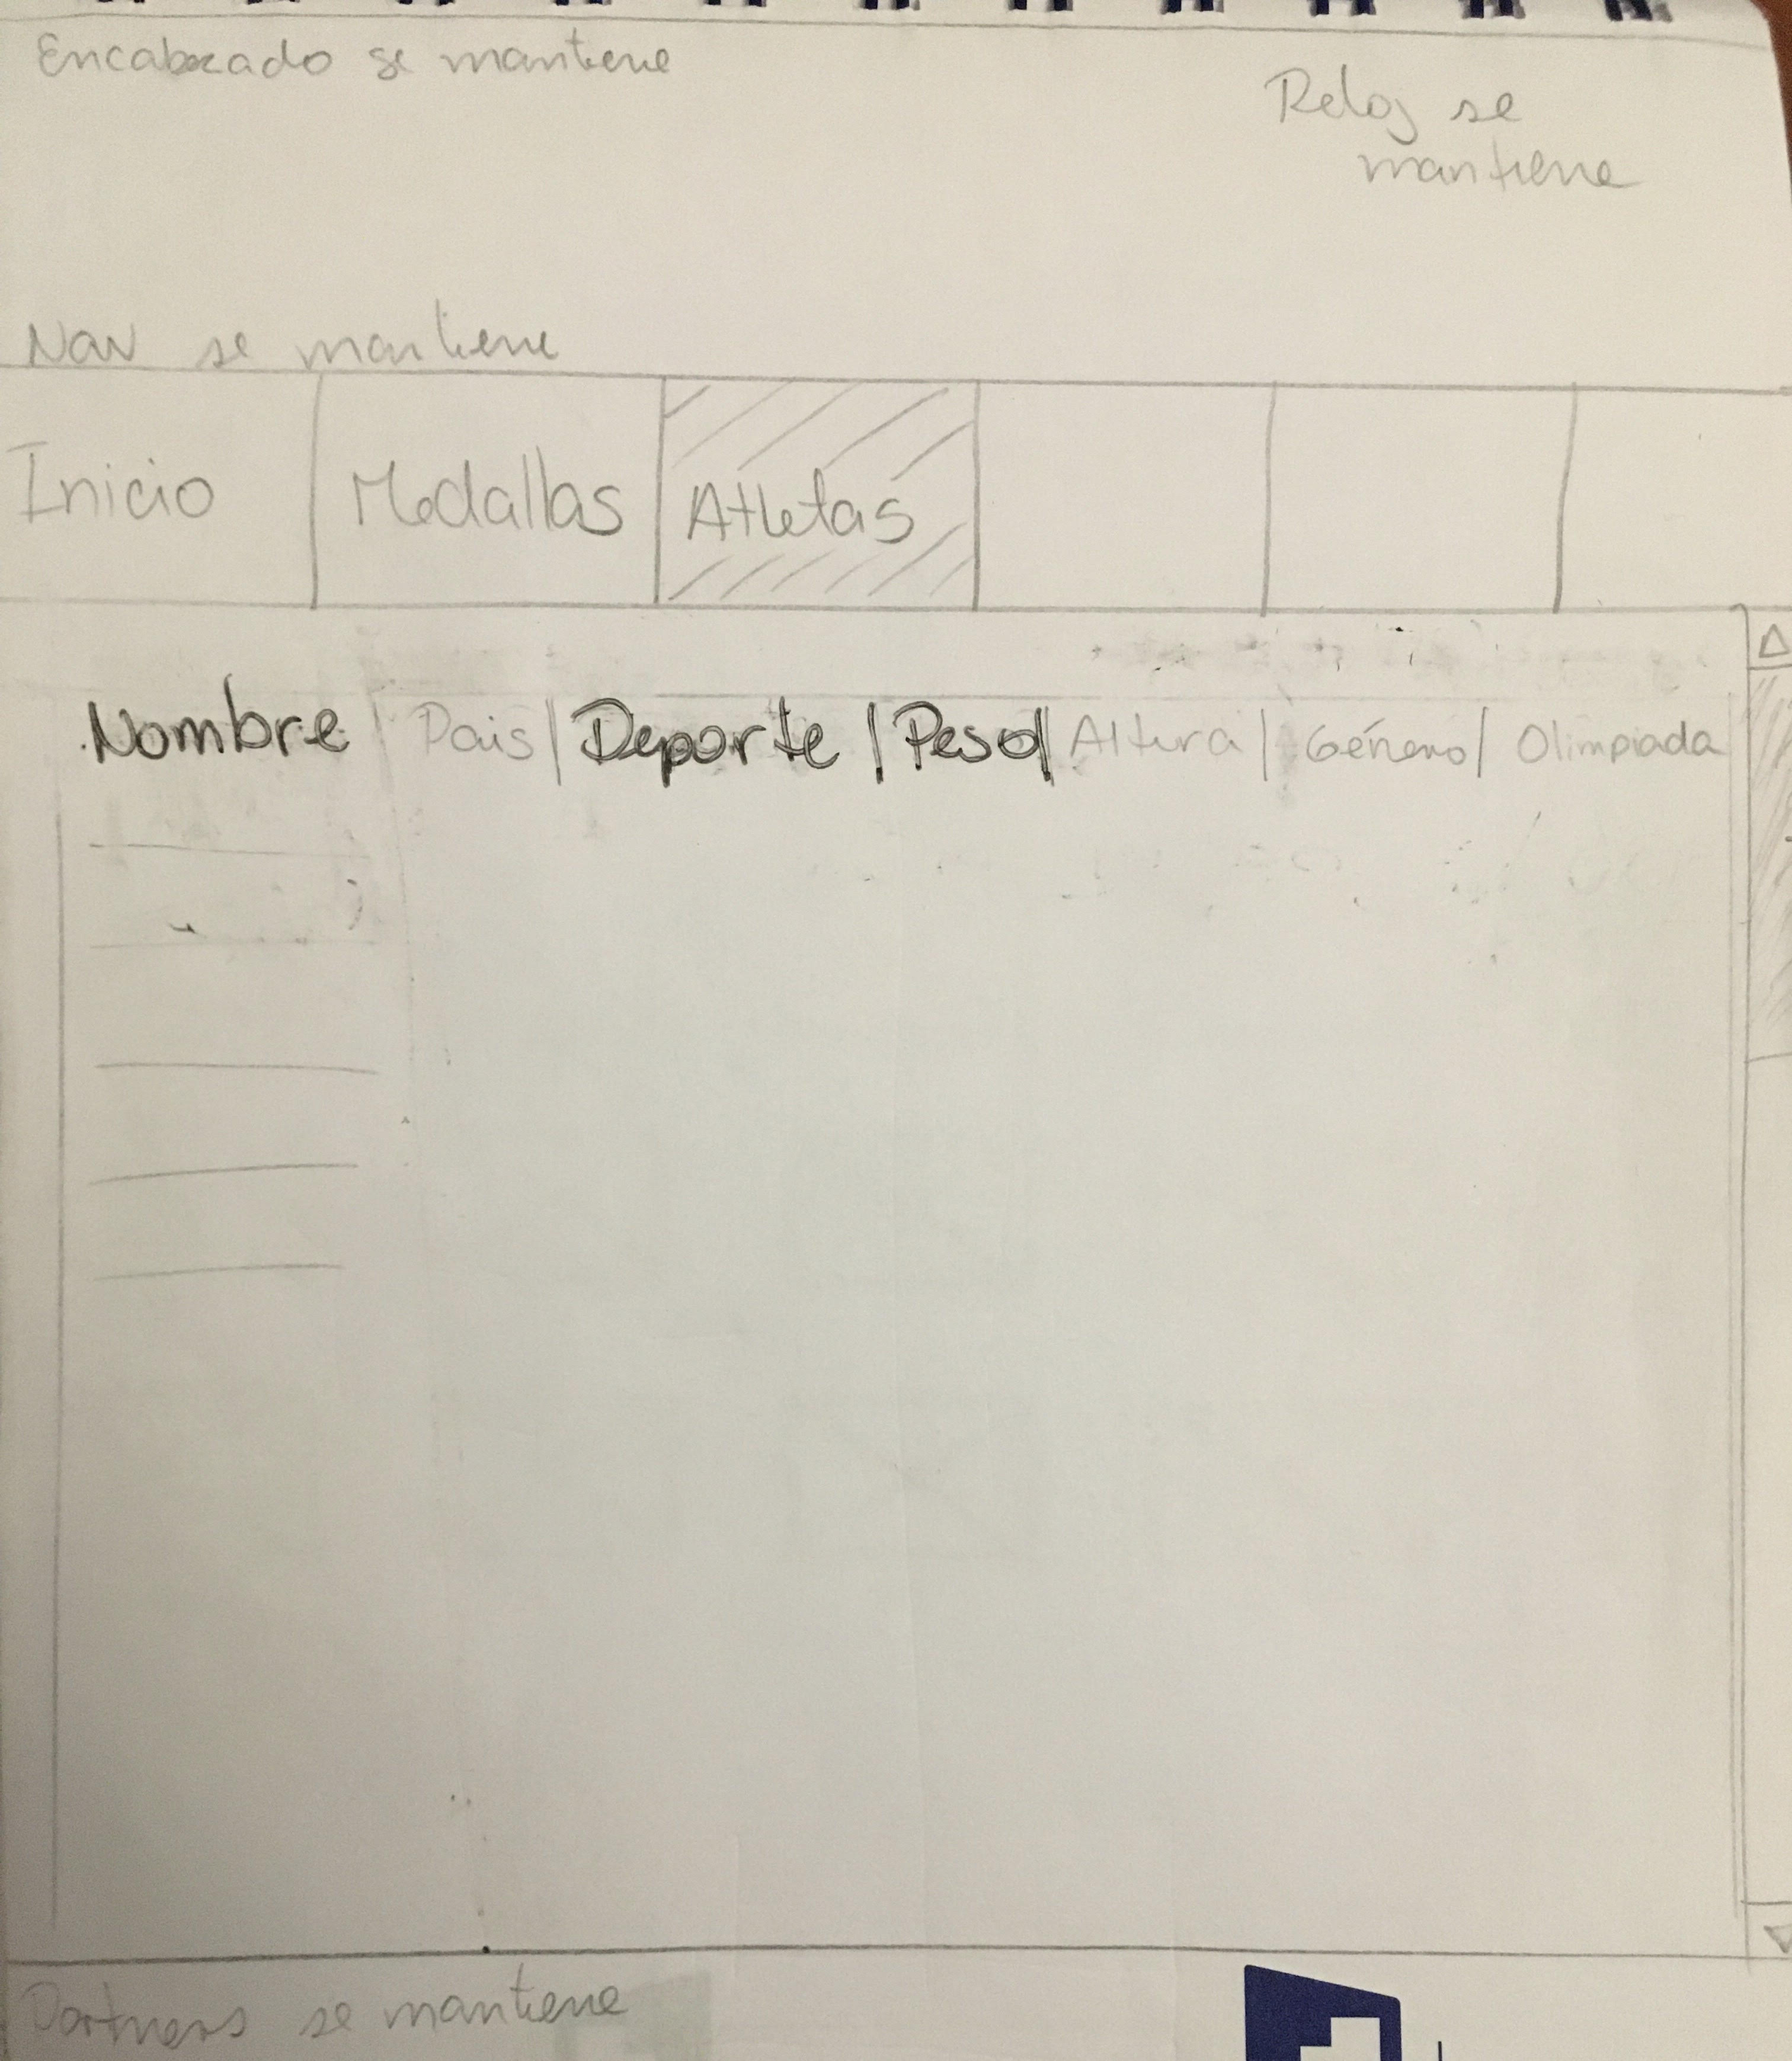 Encabezado se mantiene
Reloj se
mantiene
Nav se mantiene
Inicio Medallas Atletas
Nombre | Pais | Deporte | Peso | Altura | Género | Olimpiada
Partners se mantiene